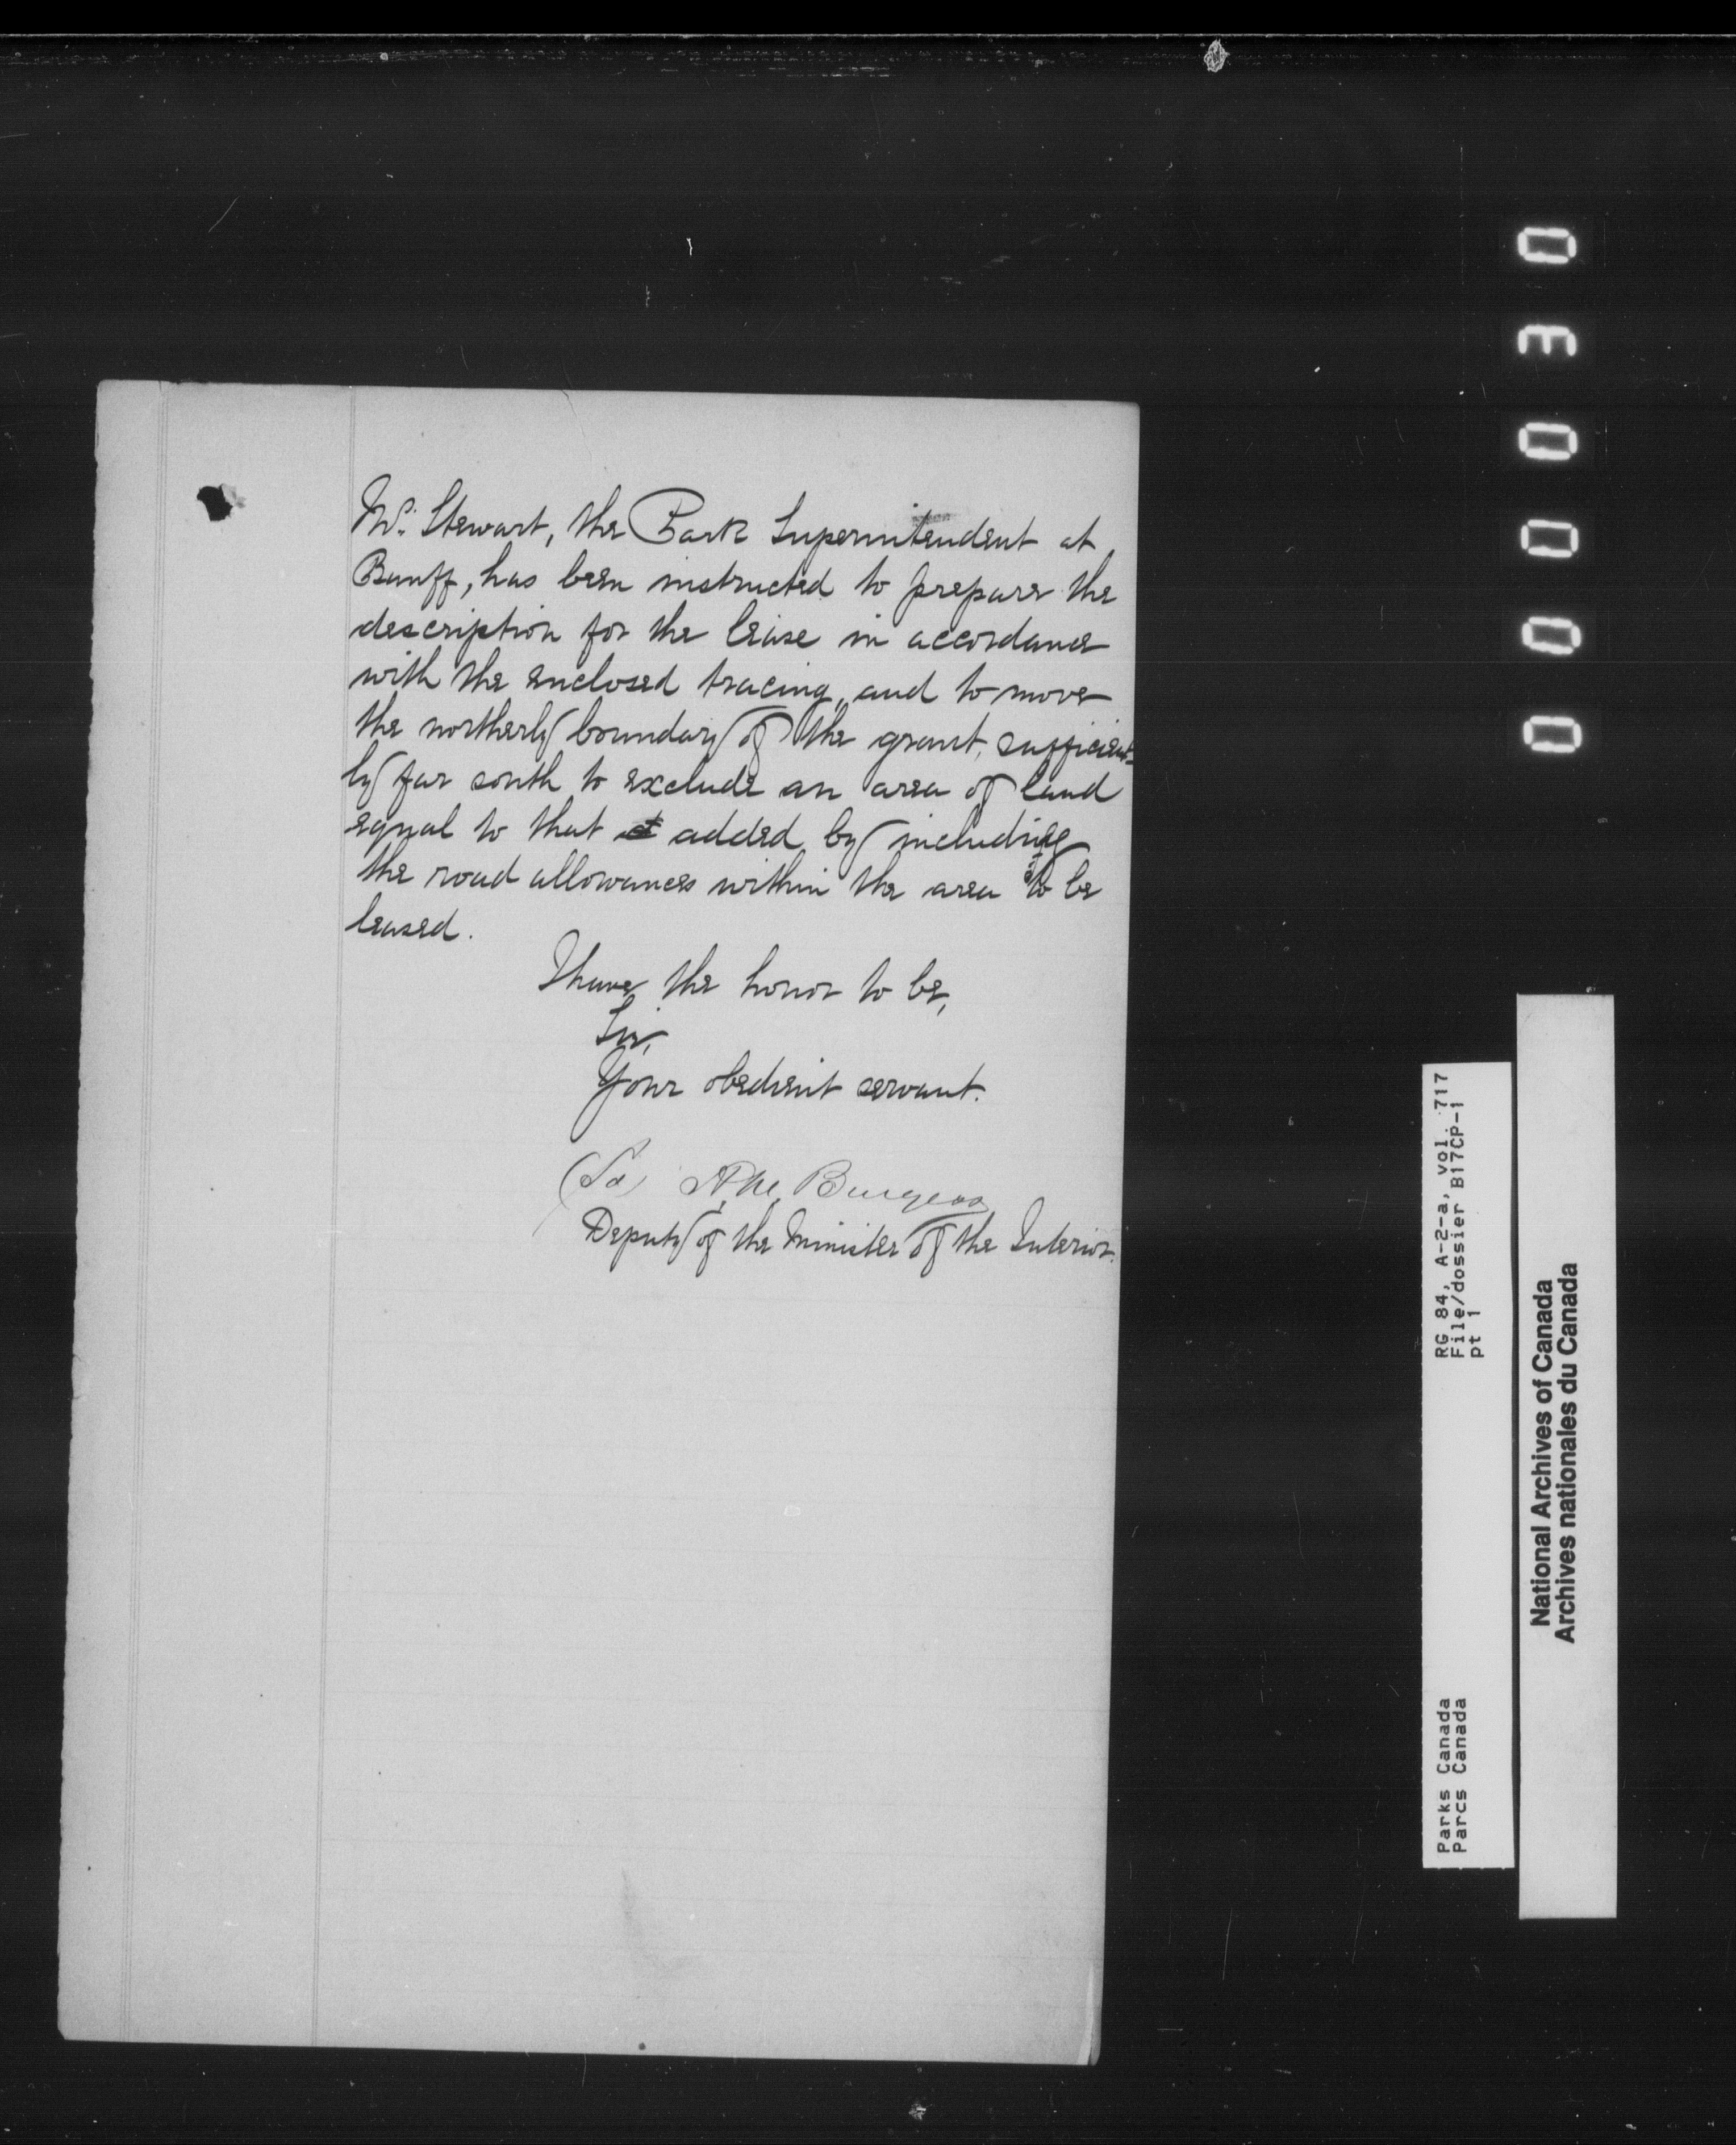 Mr. Stewart, the Park Superintendent at
Banff, has been instructed to prepare the
description for the lease in accordance
with the enclosed tracing, and to move
the northerly boundary of the grant, sufficient-
ly far south to exclude an area of land
equal to that added by including
the road allowances within the area to be
leased.
I have the honor to be,
Sir,
Your obedient servant.
(Sd) A.M. Burgess
Deputy of the Minister of the Interior.
000030
RG 84, A-2-a, vol. 717
File/dossier B17CP-1
pt 1
Parks Canada
Parcs Canada
National Archives of Canada
Archives nationales du Canada